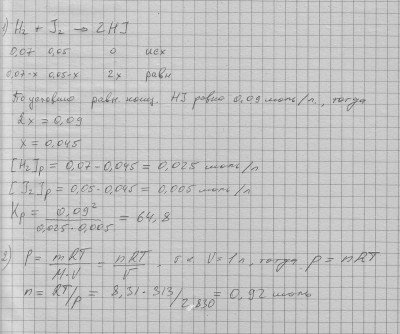 1) H₂ + J₂ → 2HJ
0,07 0,05 0 исх
0,07-x 0,05-x 2x равн
По условию равн. конц. HJ равно 0,09 моль/л, тогда
2x = 0,09
x = 0,045
[H₂]р = 0,07 - 0,045 = 0,025 моль/л
[J₂]р = 0,05 - 0,045 = 0,005 моль/л
Kр = 0,09² / 0,025 · 0,005 = 64,8
2) P = mRT / M·V = nRT / V, т.к. V = 1 л, тогда p = nRT
n = RT/p = 8,31 · 313 / 2,830 = 0,92 моль